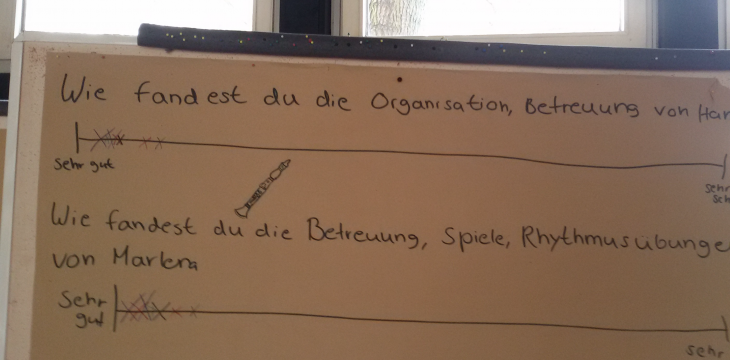 Wie fandest du die Organisation, Betreuung von Han
Sehr gut
Sehr
Sch
Wie fandest du die Betreuung, Spiele, Rhythmusübunge
von Marlena
Sehr
gut
sehr